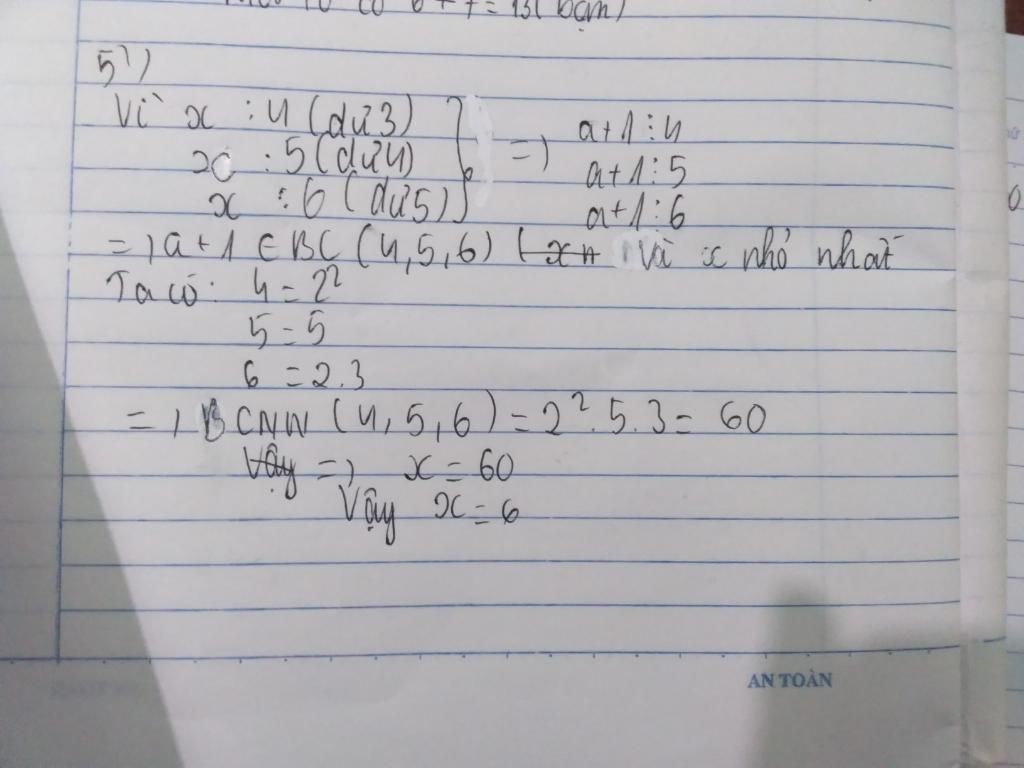 = 13 (bạn)
5)
Vì x : 4 (dư 3)
x : 5 (dư 4)
x : 6 (dư 5)
=) a+1 ⋮ 4
a+1 ⋮ 5
a+1 ⋮ 6
=) a+1 ∈ BC (4,5,6) và x nhỏ nhất
Ta có: 4 = 2²
5 = 5
6 = 2.3
=) BCNN (4,5,6) = 2².5.3 = 60
Vậy =) x = 60
Vậy x = 6
AN TOÀN